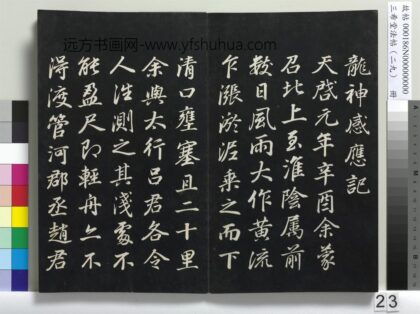 龍神感應記
天啓元年辛酉余蒙
召北上至淮陰属前
数日風雨大作黄流
乍漲淤泥乗之而下
清口壅塞且二十里
余與太行吕君各令
人往測之其淺處不
能盈尺即輕舟亦不
得渡管河郡丞趙君
远方书画网-www.yfshuhua.com
故帖 000186N000000000
三希堂法帖（二九） 冊
23